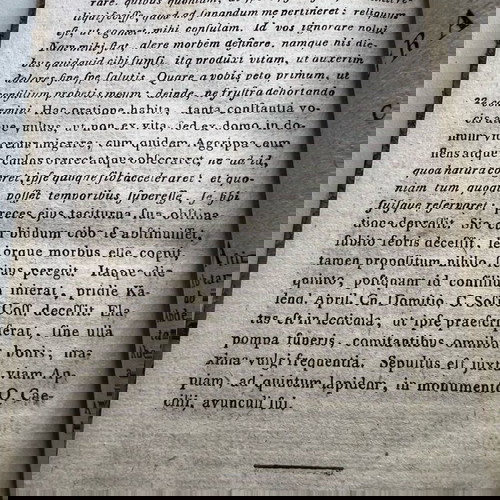 quod ad ſanandum me pertineret: reliquum
eſt ut egomet mihi conſulam. Id vos ignorare nolui
Nam mihi ſtat, alere morbum deſinere, namque his die-
bus quidquid cibi ſumſi, ita produxi vitam, ut auxerim
dolores ſine ſpe ſalutis. Quare a vobis peto primum, ut
conſilium probetis meum: deinde, ne fruſtra dehortando
22. emini. Hac oratione habita, tanta conſtantia vo-
cis atque vultus, ut non ex vita, ſed ex domo in do-
mum migrare: cum quidem Agrippa eum
flens atque oſculans oraret atque obſecraret, ne ad id,
quod natura ret, ipſe quoque ſibi acceleraret: et quo-
niam tum quoque poſſet temporibus ſupereſſe, ſe ſibi
ſuiſque reſervaret:
preces ejus taciturna ſua obſtina-
tione Sic cum biduum cibo ſe abſtinuiſſet,
ſubito febris deceſſit, le-
orque morbus eſſe coepit
tamen propoſitum nihilo
ſecius peregit. Itaque die
quinto, poſtquam id conſiliu
inierat, pridie Ka-
lend. April. Cn. Domitio, C. Soſ
Coſſ. deceſſit. Ela-
tus eſt in lecticula, ut ipſe praeſcri
ſerat, ſine ulla
pompa funeris, comitantibus omnibus
bonis, ma-
xima vulgi frequentia. Sepultus eſt juxta
viam Ap-
piam, ad quintum lapidem, in monumento
Q. Cae-
cilii, avunculi ſui.